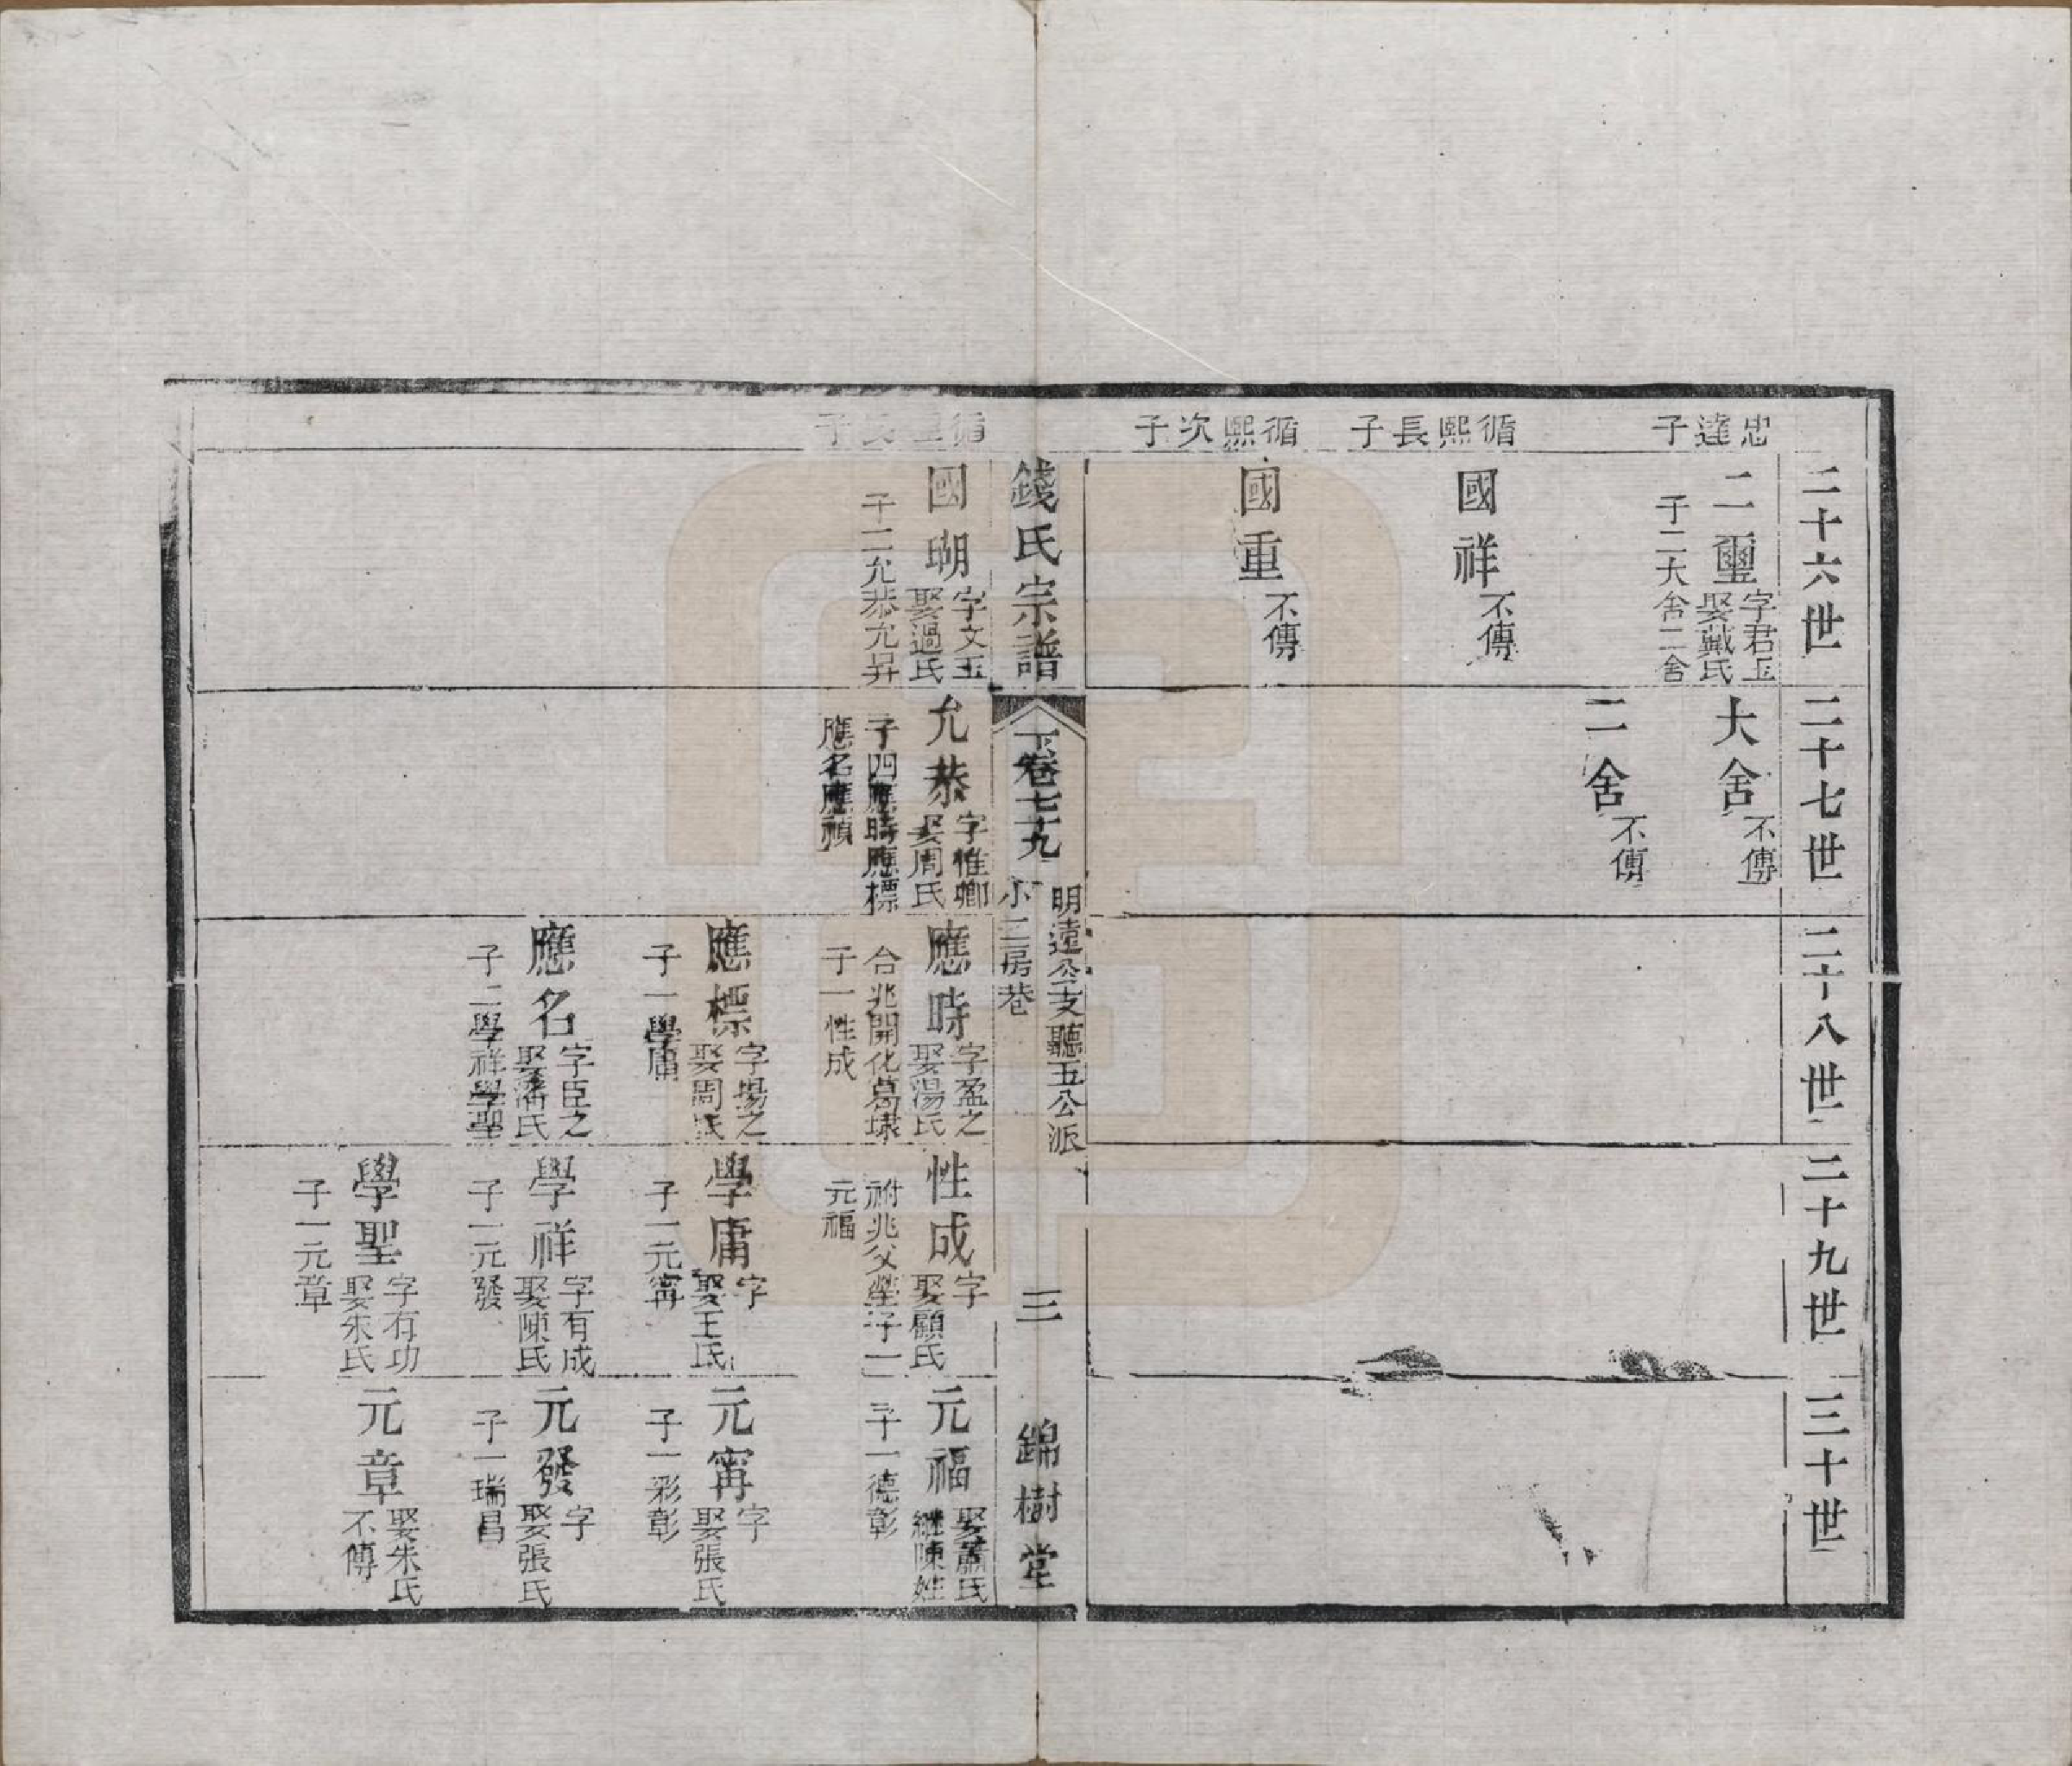 二十六世
二十七世
二十八世
二十九世
三十世
忠達子
二璽
字君玉
娶戴氏
子二大舍二舍
大舍
不傳
二舍
不傳
循熙長子
國祥
不傳
循熙次子
國重
不傳
錢氏宗譜
下卷七十九
明遠公支聽五公派
小二房巷
三
錦樹堂
國瑚
字文玉
娶過氏
子二允恭允昇
允恭
字惟卿
娶周氏
子四應時應標
應名應禎
應時
字盈之
娶湯氏
合兆開化葛埭
子一性成
性成
字
娶顧氏
祔兆父塋子一
元福
元福
娶蕭氏
繼陳姓
子一德彰
應標
字揚之
娶周氏
子一學庸
學庸
字
娶王氏
子一元甯
元甯
字
娶張氏
子一彩彰
應名
字臣之
娶潘氏
子二學祥學聖
學祥
字有成
娶陳氏
子一元發
元發
字
娶張氏
子一瑞昌
學聖
字有功
娶朱氏
子一元章
元章
娶朱氏
不傳